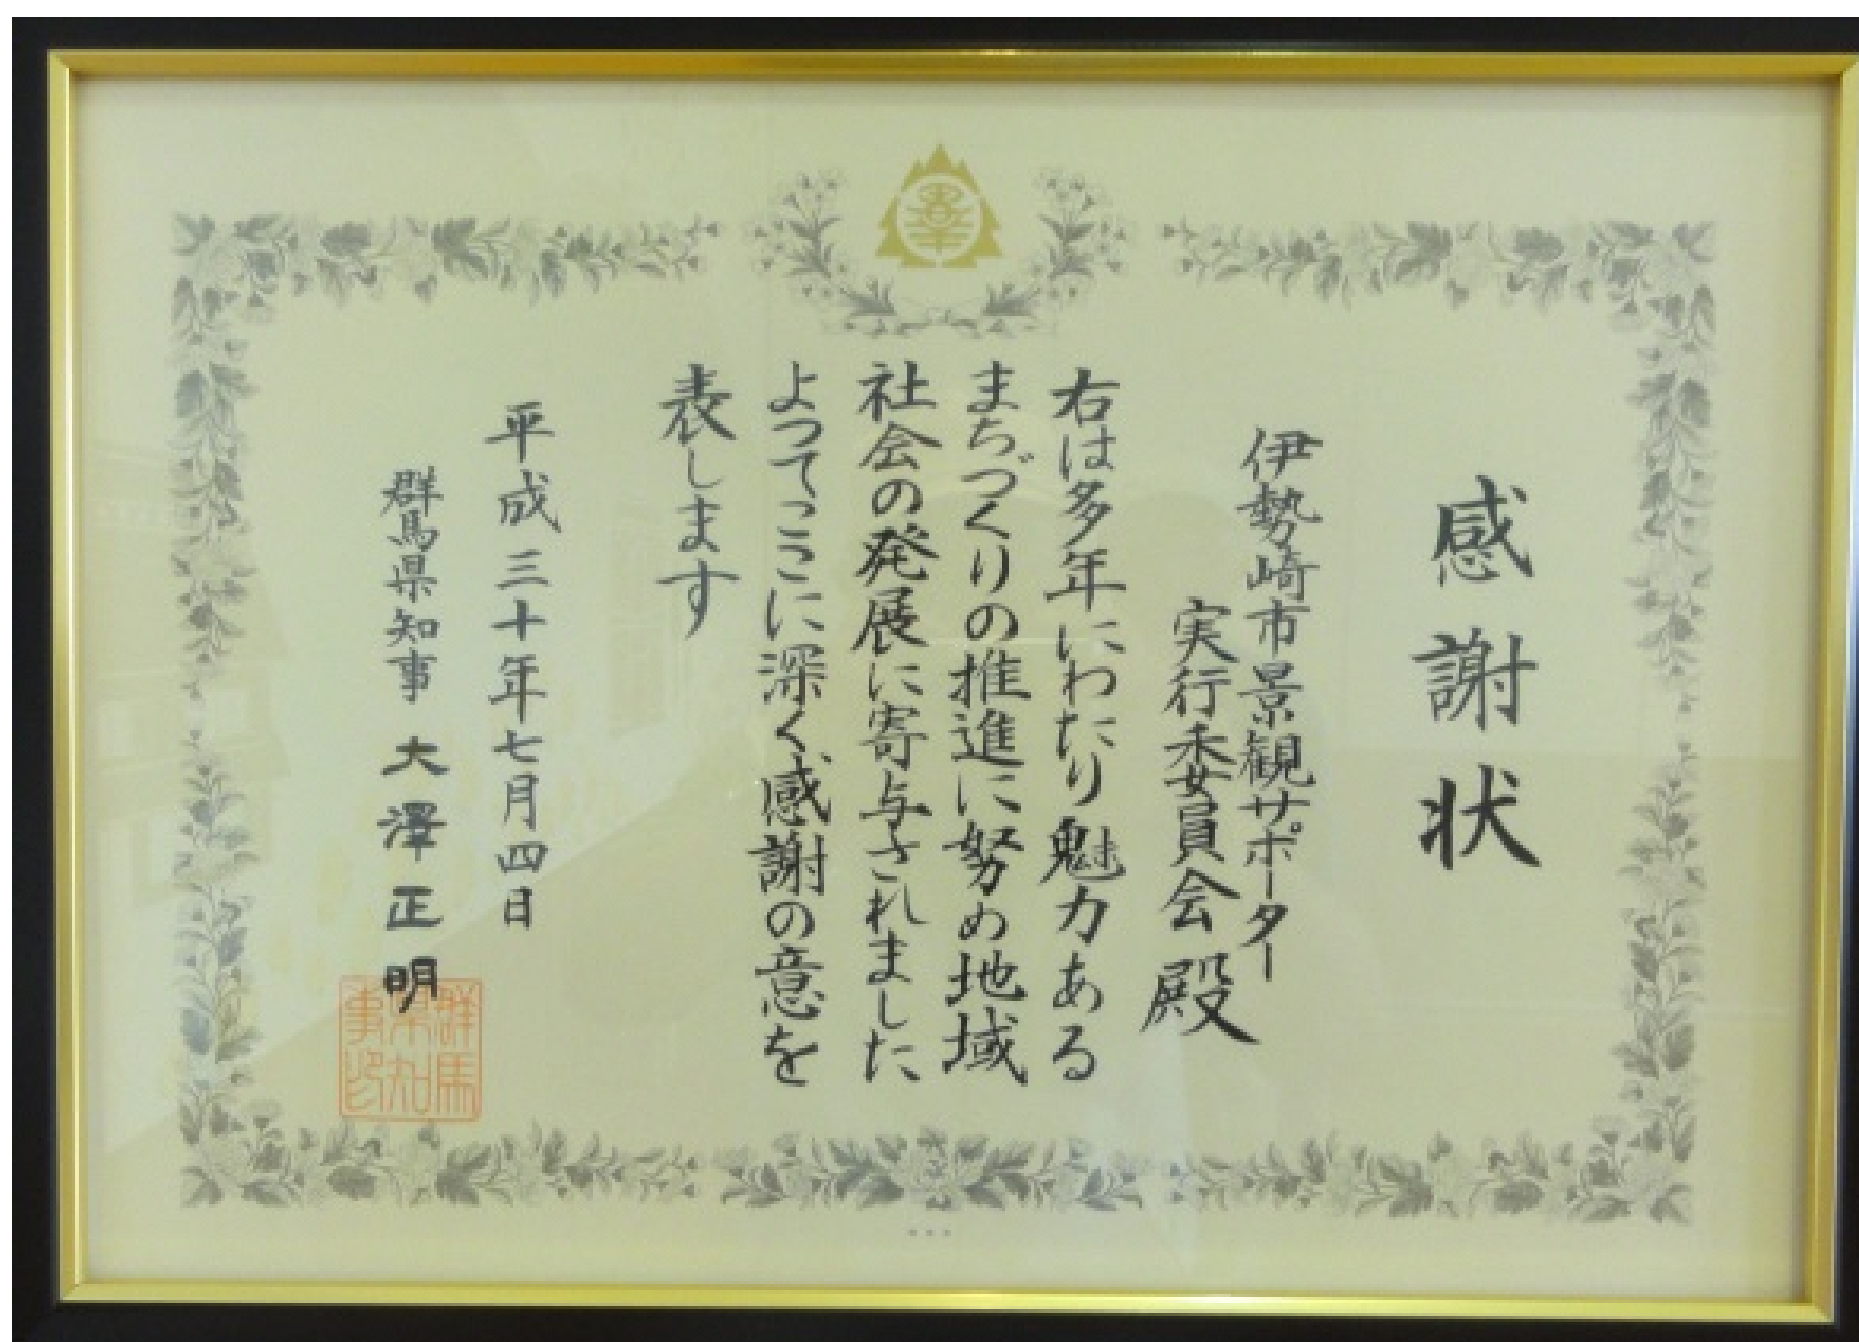 感謝状
伊勢崎市景観サポーター
実行委員会殿
右は多年にわたり魅力ある
まちづくりの推進に努め地域
社会の発展に寄与されました
よつてここに深く感謝の意を
表します
平成三十年七月四日
群馬県知事 大澤正明
群馬
県知
事印